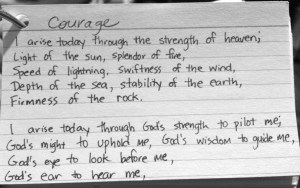 Courage
I arise today through the strength of heaven;
Light of the sun, splendor of fire,
Speed of lightning, swiftness of the wind,
Depth of the sea, stability of the earth,
Firmness of the rock.
I arise today through God's strength to pilot me;
God's might to uphold me, God's wisdom to guide me,
God's eye to look before me,
God's ear to hear me,